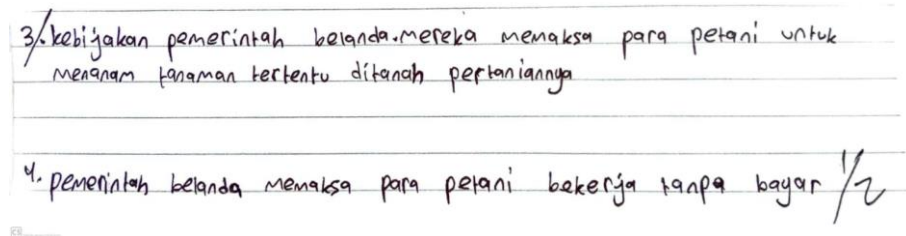 3. kebijakan pemerintah belanda. mereka memaksa para petani untuk
menanam tanaman tertentu ditanah pertaniannya
4. pemerintah belanda memaksa para petani bekerja tanpa bayar 1/2